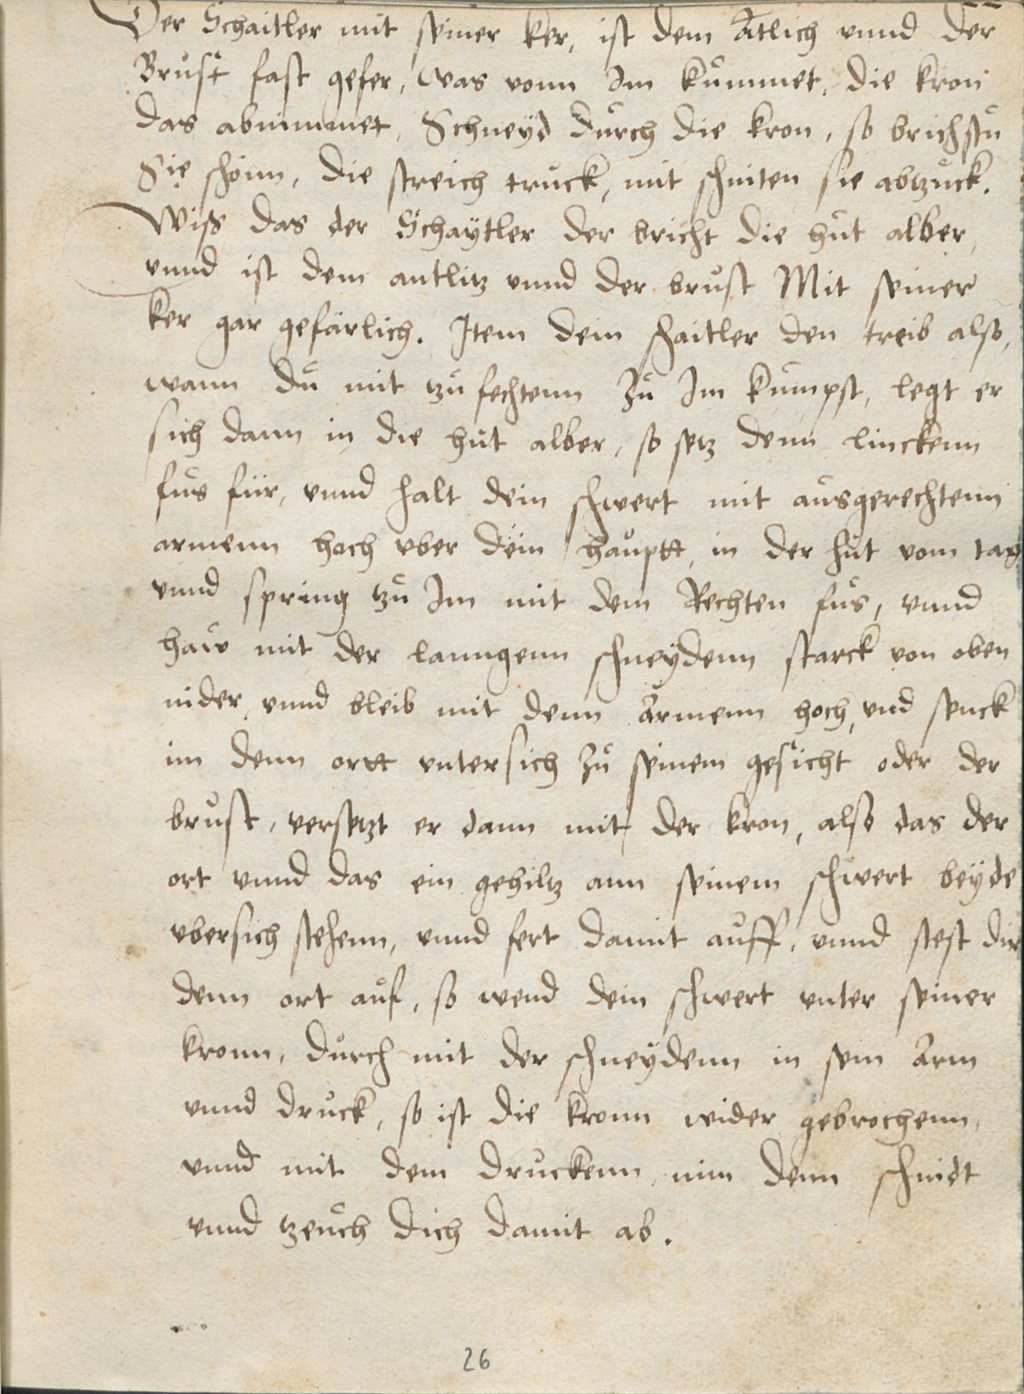 Der Schaitler mit seiner ker, ist dem Antlich unnd der
Brust fast gefer, was vonn Im kummet, die kron
das abnimmet, Schneyd durch die kron, so brichstu
Sie schonn, die streich truck, mit schniten sie abtzuck.
Wiss das der Schaÿtler der bricht die hut alber,
vnnd ist dem antlitz vnnd der brust Mit seiner
ker gar gefärlich. Item dein schaitler den treib also,
wann du mit tzu fechtenn Zu Im kumpst, legt er
sich dann in die hut alber, so setz denn linckenn
fus für, vnnd halt dein schwert mit ausgerechtenn
armenn hoch vber dein hauptt, in der hut vom tag
vnnd spring tzu Im mit dem Rechten fus, vnnd
haw mit der lanngenn schneÿdenn starck von oben
nider, vnnd bleib mit denn armenn hoch, vnd senck
im denn ortt vntersich Zu seinem gesicht oder der
brust, versetzt er dann mit der kron, also das der
ort vnnd das ein gehiltz ann seinem schwert beÿde
vbersich stehenn, vnnd fert damit auff, vnnd stest dir
denn ort auf, so wend dein schwert vnter seiner
kronn, durch mit der schneÿdenn in sein Arm
vnnd druck, so ist die kronn wider gebrochenn,
vnnd mit dem druckenn, nim denn schnidt
vnnd tzeuch dich damit ab.
26